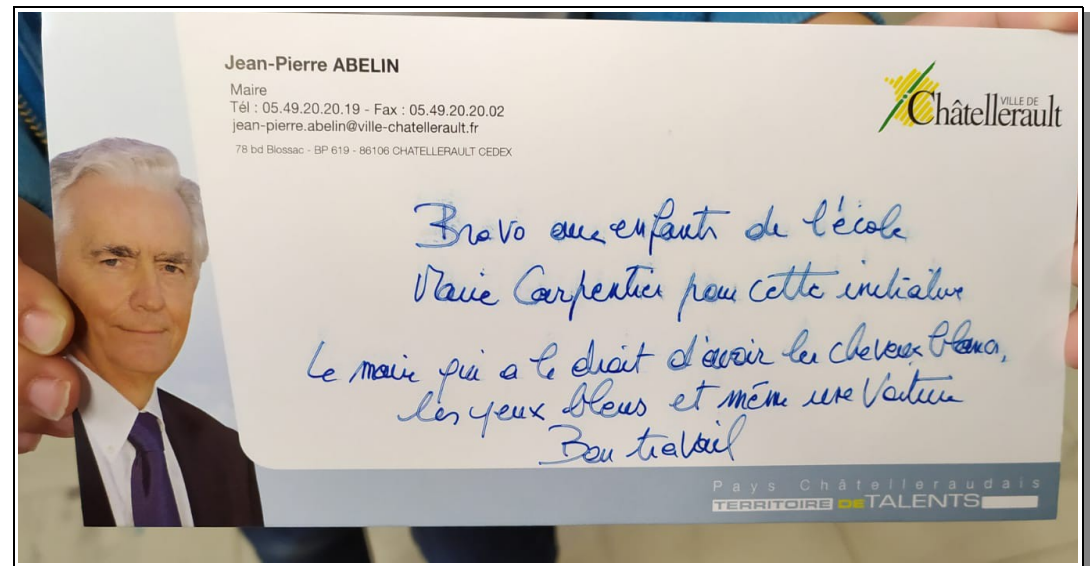 Jean-Pierre ABELIN
Maire
Tél : 05.49.20.20.19 - Fax : 05.49.20.20.02
jean-pierre.abelin@ville-chatellerault.fr
78 bd Blossac - BP 619 - 86106 CHATELLERAULT CEDEX
VILLE DE
Châtellerault
Bravo aux enfants de l'école
Marie Carpentier pour cette initiative
Le maire qui a le droit d'avoir les cheveux blancs,
les yeux bleus et même une voiture
Bon travail
Pays Châtelleraudais
TERRITOIRE DE TALENTS